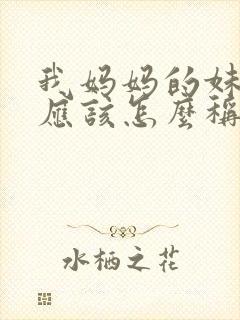 我妈妈的妹
应该怎麼稱
水栖之花